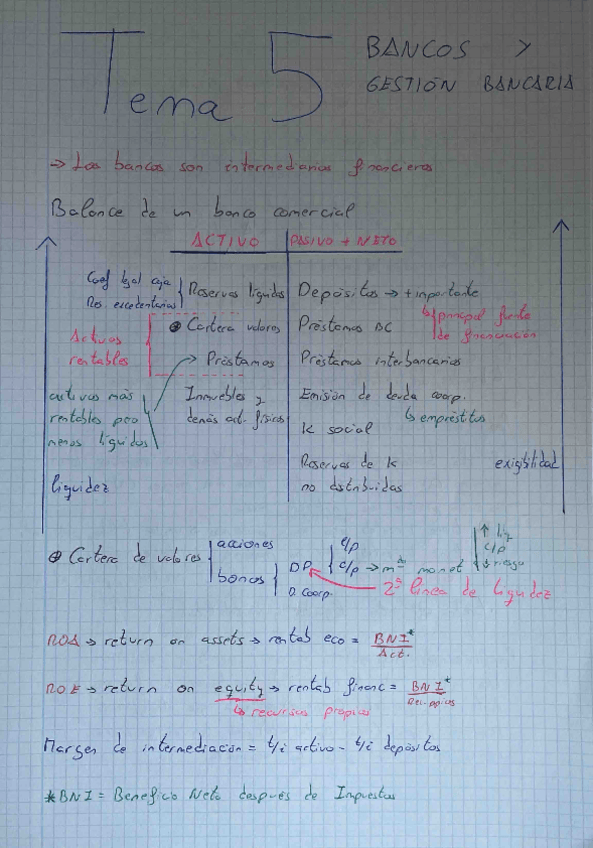 Tema 5
BANCOS Y
GESTIÓN BANCARIA
→ Los bancos son intermediarios financieros
Balance de un banco comercial
ACTIVO | PASIVO + NETO
Coef legal caja
Rs. excedentarias
Reservas líquidas
Depósitos → + importante
↳ principal fuente
de financiación
Cartera valores
Préstamos BC
Activos
rentables
Préstamos
Préstamos interbancarios
activos más
rentables pero
menos líquidos
Inmuebles y
demás act. físicos
Emisión de deuda coorp.
↳ empréstitos
K social
Reservas de K
no distribuidas
liquidez
exigibilidad
Cartera de valores
acciones
bonos
DP
D. Coorp.
c/p → m⁠do monet
↑ liq
c/p
↓ riesgo
2ª línea de liquidez
ROA → return on assets → rentab eco = BNI* / Act.
ROE → return on equity → rentab financ = BNI* / Rec. ppios
↳ recursos propios
Margen de intermediación = t/i activo - t/i depósitos
*BNI = Beneficio Neto después de Impuestos